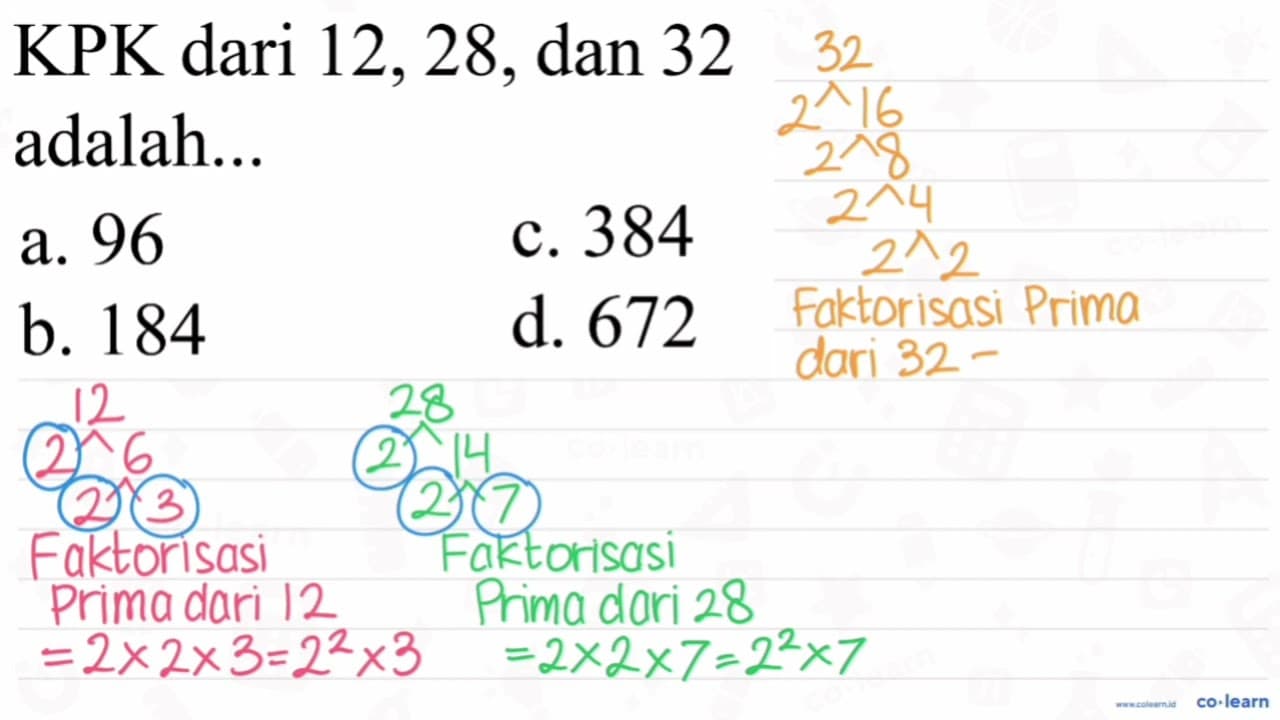 KPK dari 12, 28, dan 32
adalah...
a. 96
c. 384
b. 184
d. 672
32
2 16
2 8
2 4
2 2
Faktorisasi Prima
dari 32 -
12
2 6
2 3
Faktorisasi
Prima dari 12
= 2 × 2 × 3 = 2² × 3
28
2 14
2 7
Faktorisasi
Prima dari 28
= 2 × 2 × 7 = 2² × 7
www.colearn.id co·learn